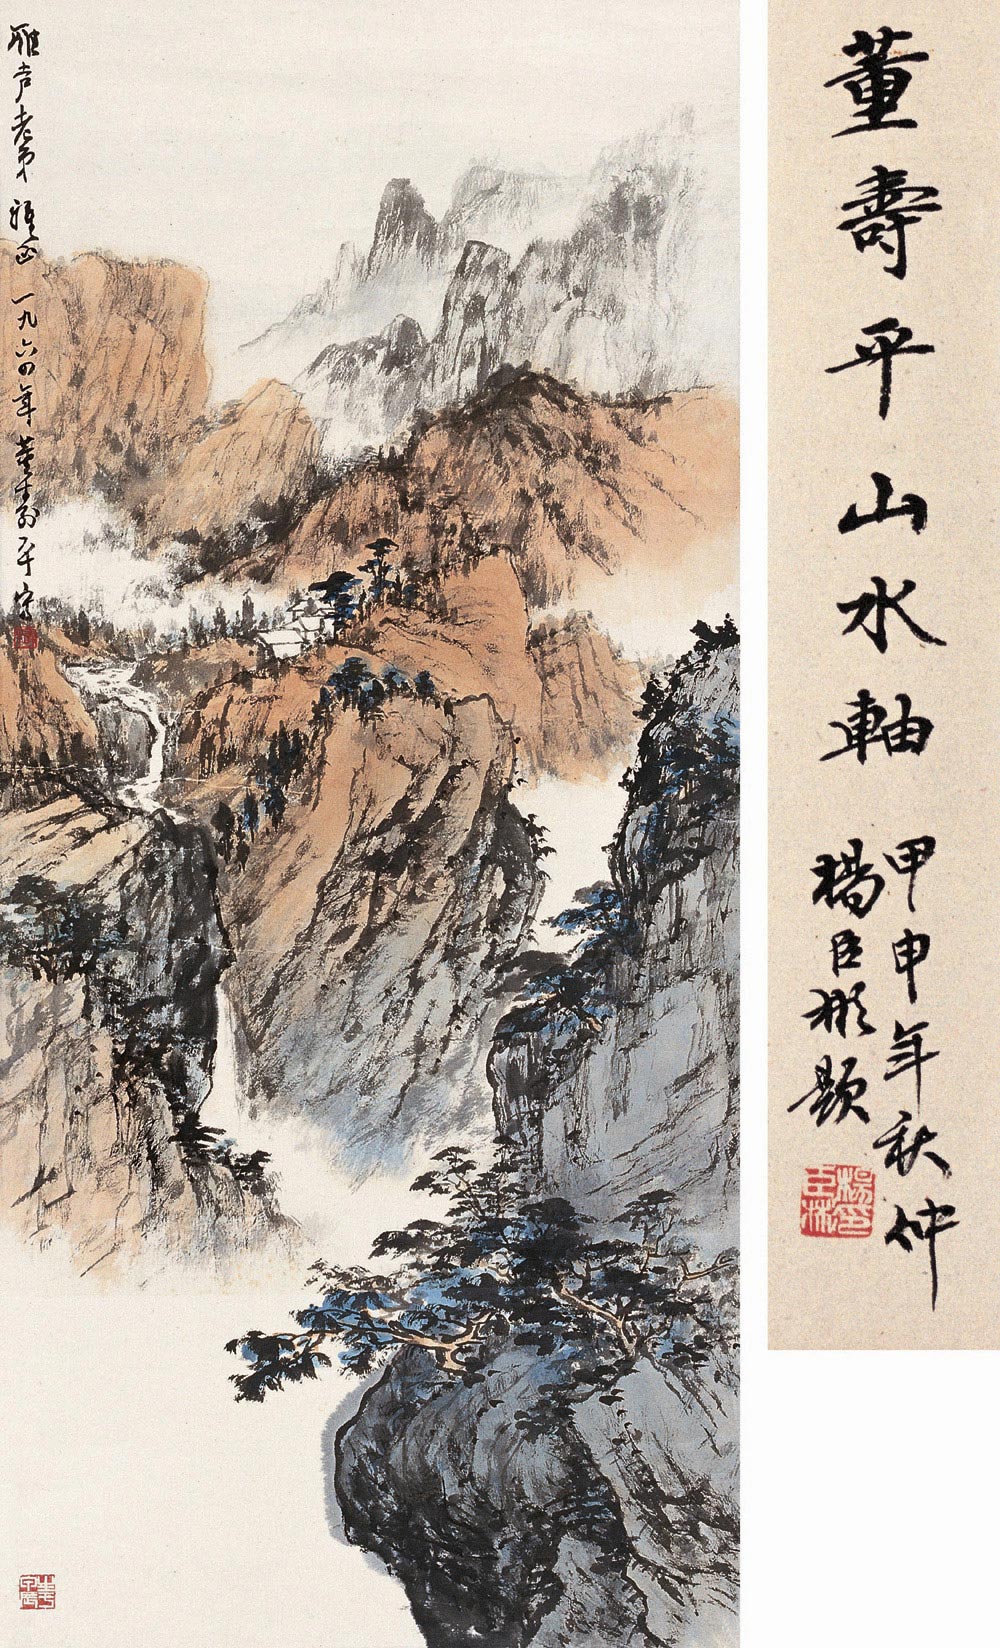 雅声老弟雅正 一九六四年董寿平写
董壽平山水軸
甲申年秋仲
楊臣彬題
楊臣彬印